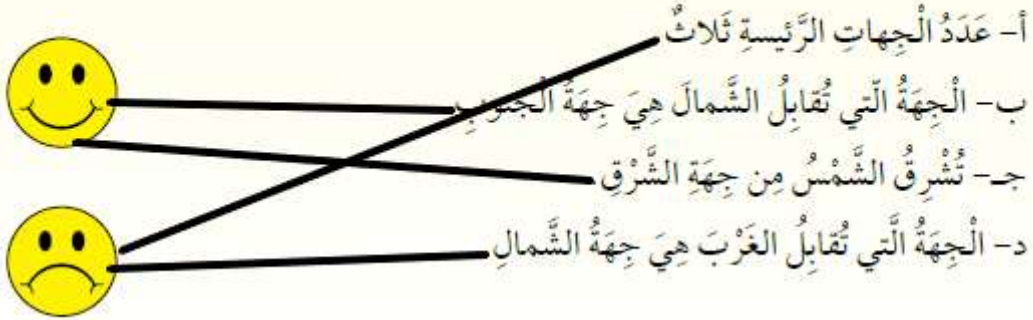 أ- عَدَدُ الْجِهاتِ الرَّئيسةِ ثَلاثٌ
ب- الْجِهَةُ الّتي تُقابِلُ الشَّمالَ هِيَ جِهَةُ الْجَنوبِ
جـ- تُشْرِقُ الشَّمْسُ مِن جِهَةِ الشَّرْقِ
د- الْجِهَةُ الَّتي تُقابِلُ الغَرْبَ هِيَ جِهَةُ الشَّمالِ